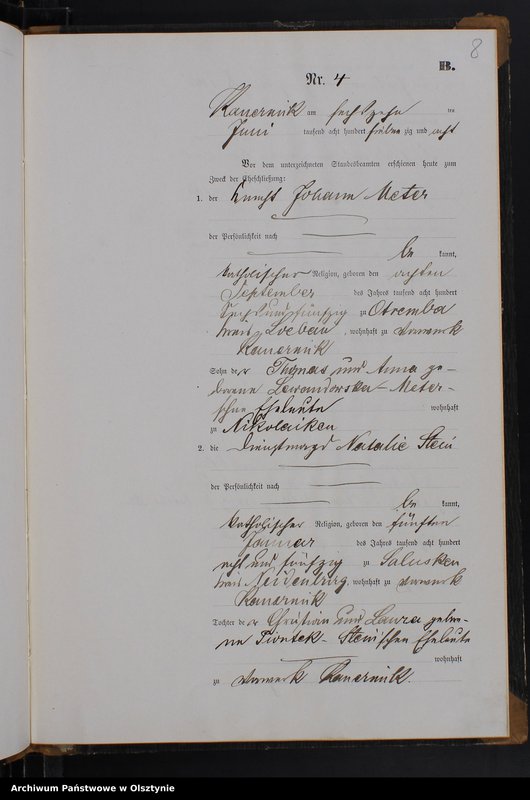 8
B.
Nr. 4
Kauernik am sechszehn ten
Juni tausend acht hundert sieben zig und acht
Vor dem unterzeichneten Standesbeamten erschienen heute zum
Zweck der Eheschließung:
1. der Knecht Johann Meter
der Persönlichkeit nach
be kannt,
katholischer Religion, geboren den achten
September des Jahres tausend acht hundert
sechsundfünfzig zu Otremba
Kreis Loebau, wohnhaft zu Vorwerk
Kauernik
Sohn der Thomas und Anna ge-
borene Lewandowska-Meter-
schen Eheleute wohnhaft
zu Nikolaiken
2. die Dienstmagd Natalie Stein
der Persönlichkeit nach
be kannt,
katholischer Religion, geboren den fünften
Januar des Jahres tausend acht hundert
acht und fünfzig zu Salusken
Kreis Neidenburg, wohnhaft zu Vorwerk
Kauernik
Tochter der Christian und Laura gebore-
ne Piontek-Steinschen Eheleute
wohnhaft
zu Vorwerk Kauernik.
Archiwum Państwowe w Olsztynie